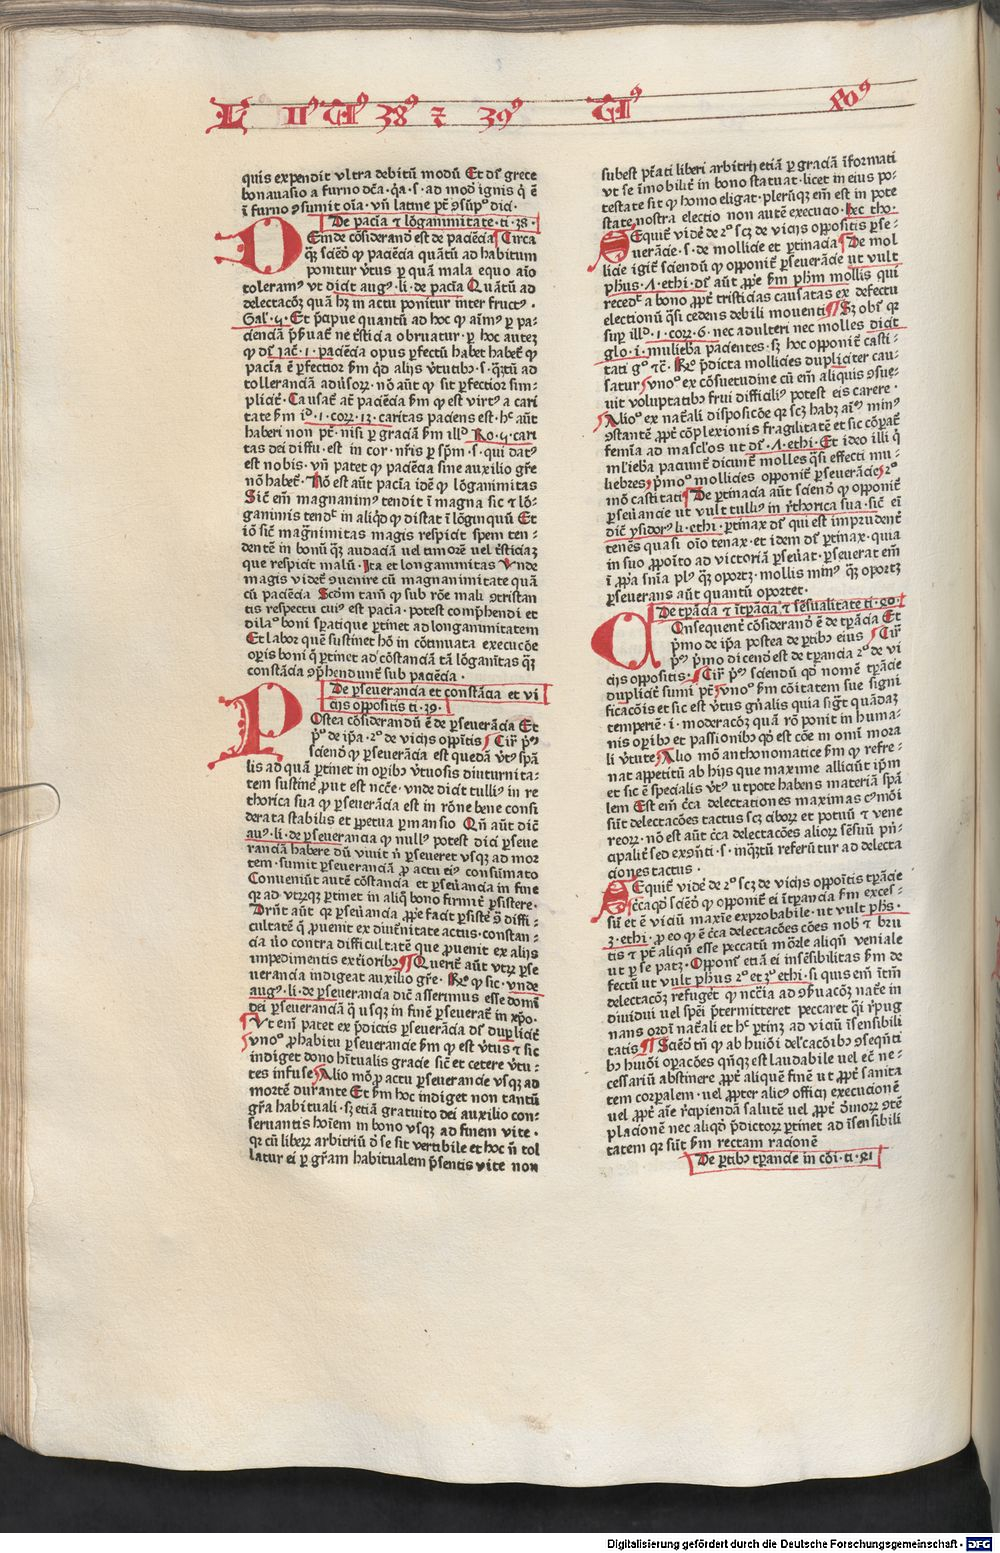 L II⁹ Tꝰ 38⁹ ⁊ 39⁹ Tꝰ 40⁹
quis expendit vltra debitū modū Et dr̄ grece
bonauasio a furno dc̄a · q̄a · s · ad mod̄ ignis q̇ ē
ī furno ꝯsumit oīa · vn̄ latine pt̄ ꝯsūpͦ dici ·
De paciā ⁊ lōganimitate · ti · 38 ·
DEinde cōsiderand̄ est de paciēcia Circa
q̄ꝫ sciēd̄ ꝙ paciēcia quātū ad habitum
ponitur v̄tus ꝑ quā mala equo aīo
toleramꝰ vt dicit augꝰ · li · de paciā Quātū ad
delectacōꝫ quā hꝫ in actu ponitur inter fructꝰ ·
Gal̄ · 5 · Et p̄cipue quantū ad hoc ꝙ aīmꝰ ꝑ pa⸗
cienciā p̄seruat̄ ne tristicia obruatur · ꝑ hoc autez
ꝙ dr̄ Iac̄ · 1 · paciēcia opus ꝑfectū habet habet̄ ꝙ
paciā ē ꝑfectior ẜm q̇d alijs v̄tutibꝰ · s · q̄ꝫtū ad
tollerancia aduersoꝝ · nō aūt ꝙ sit ꝑfectior sim⸗
plicit̄ · Causat̄ at̄ paciēcia ẜm ꝙ est virtꝰ a cari
tate ẜm id̄ · 1 · corꝝ · 13 · caritas paciens est · hͨ aūt
haberi non pt̄ · nisi ꝑ graciā ẜm illd̄ Ro · 5 · cari
tas dei diffu · est in cor · nr̄is ꝑ sp̄m · s · qui datꝰ
est nobis · vn̄ patet ꝙ paciēcia sine auxilio gr̄e
nō habet̄ · Nō est aūt paciā idē ꝙ lōganimitas
Sic̄ em̄ magnanimꝰ tendit ī magna sic ⁊ lō⸗
ganimis tendͭ in aliqd̄ ꝙ distat ī lōginquū Et
iō sic̄ magn̄imitas magis respicit spem ten⸗
dentē in bonū q̄ꝫ audaciā vel timorē vel tristiciaꝫ
que respicit malū · Ita et longanimitas Vnde
magis videt̄ ꝯuenire cū magnanimitate quā
cū paciēcia Scdm tam̄ ꝙ sub rōe mali ꝯtristan
tis respectu cuiꝰ est paciā · potest comp̄hendi et
dilaͦ boni sꝑatique ꝑtinet ad longanimitatem
Et labor quē sustinet hō in cōtinuata execucōe
oꝑis boni q̇ ꝑtinet ad cōstanciā tā lōganītas q̄ꝫ
constācia ꝯp̄hendunt̄ sub paciēcia ·
De ꝑseuerancia et constācia et vi
cijs oppositis ti · 39 ·
POstea cōsiderandū ē de ꝑseuerācia Et
pͦ de ipā · 2ͦ de vicijs oppītis Cir̄ pͫ
sciend̄ ꝙ ꝑseuerācia est quedā v̄tꝰ spā
lis ad quā ꝑtinet in oꝑibꝰ v̄tuosis diuturnita⸗
tem sustinē prout est ncc̄e · vnde dicit tulliꝰ in re
thorica sua ꝙ ꝑseuerācia est in rōne bene consi
derata stabilis et ꝑpetua ꝑmansio Qn̄ aūt dic̄
auꝰ · li · de ꝑseuerancia ꝙ nullꝰ potest dici ꝑseue
ranciā habere dū viuit n̄ ꝑseueret vsqꝫ ad mor
tem · sumit ꝑseueranciā ꝓ actu eiꝰ consūmato
Conueniūt autē cōstancia et ꝑseuān̄cia in fine
qꝛ ad vtrꝫqꝫ ꝑtinet in aliq̇ bono firmit̄ ꝑsistere ·
Drn̄t aūt qꝛ ꝑseuāncia ꝓpe facit ꝑsistē ꝯ̄ diffi⸗
cultatē q̄ ꝓuenit ex diut̄nitate actus · constan⸗
cia v̄o contra difficultatē que ꝓuenit ex alijs
impedimentis exterioribꝰ ¶ Querit̄ aūt vtꝝ ꝑse
uerancia indigeat auxilio gr̄e · Rͦ ꝙ sic · vnde
augꝰ · li · de ꝑseuerancia dic̄ asserimus esse donū
dei ꝑseueranciā q̄ vsqꝫ in finē ꝑseuerat̄ in xp̄o ·
Vt em̄ patet ex p̄dictis ꝑseuerācia dr̄ duplicit̄
vnoͦ ꝓ habitu ꝑseuerancie ẜm ꝙ est v̄tus ⁊ sic
indiget dono habitualis gracie sic̄ et cetere v̄tu⸗
tes infuse Alio mō ꝓ actu ꝑseuerancie vsqꝫ ad
mortē durante Et ẜm hoc indiget non tantū
gr̄a habituali · sꝫ etiā gratuito dei auxilio con⸗
seruantis hoīem in bono vsqꝫ ad finem vite ·
qꝛ cū liberꝝ arbitriū d̄ se sit vertibile et hoc n̄ tol
latur ei ꝑ gr̄am habitualem p̄sentis vite non
subest p̄tati liberi arbitrij etiā ꝑ graciā īformati
vt se īmobilit̄ in bono statuat · licet in eius po⸗
testate sit ꝙ homo eligat · plerūqꝫ em̄ est in pote
state nostra electio non autē execucio · hec tho ·
SEquit̄ vidē de 2ͦ scꝫ de vicijs oppositis ꝑse⸗
uerācie · s · de mollicie et ꝑtinacia De mol
licie igit̄ sciendū ꝙ opponit̄ ꝑseuerācie ut vult
phus · 7 · ethi · dr̄ aūt ꝓpe ẜm phm̄ mollis qui
recedͭ a bono ꝓpt̄ tristicias causatas ex defectu
electionū q̄si cedens debili mouenti ¶ Sꝫ obr̄ qꝛ
suꝑ illd̄ · 1 · corꝝ · 6 · nec adulteri nec molles dicit
glo · i · muliebā pacientes · sꝫ hoc opponit̄ casti⸗
tati gͦ ⁊c̄ · Rͦ p̄dicta mollicies dupliciter cau⸗
satur vnoͦ ex cōsuetudine cū em̄ aliquis ꝯsue⸗
uit voluptatibꝰ frui difficiliꝰ potest eis carere ·
Alioͦ ex nat̄ali disposicōe qꝛ scꝫ habꝫ aīꝰ minꝰ
ꝯstantē ꝓpt̄ cōplexionis fragilitatē et sic cōparat̄
femīa ad mascl̄os ut dr̄ · 7 · ethi · Et ideo illi q̇
ml̄iebā paciunt̄ dicunt̄ molles q̄si effecti mu⸗
liebres p̄moͦ mollicies opponit̄ ꝑseuerācie 2ͦ
mō castitati De ꝑtinacia aūt sciend̄ ꝙ opponit̄
ꝑseuāncie ut vult tulliꝰ in r̄thorica sua · sic̄ ei
dic̄ ysidorꝰ li · ethi · ꝑtinax dr̄ qui est imprudent̄
tenēs quasi oīo tenax · et idem dr̄ ꝑtinax · quia
in suo ꝓpoīto ad victoriā ꝑseuat̄ · ꝑseuerat em̄
ī ꝓpa sn̄ia plꝰ q̄ꝫ oportꝫ · mollis minꝰ q̄ꝫ oportꝫ
ꝑseuerans aūt quantū oportet ·
De tꝑācia ⁊ ītꝑācia · ⁊ sēsualitate ti · 40 ·
COnsequent̄ cōsiderand̄ ē de tꝑācia Et
p̄mo de ipā postea de ꝑtibꝰ eius Cir̄
pͫ p̄mo dicend̄ est de tꝑancia 2ͦ de vi
cijs oppositis · Cir̄ pͫ sciendū ꝙ nomē tꝑācie
duplicit̄ sumi pt̄ vnoͦ ẜm cōitatem sue signi
ficacōis et sic est v̄tus gn̄alis quia sigt̄ quādaꝫ
temperiē · i · moderacōꝫ quā rō ponit in huma⸗
nis oꝑibꝰ et passionibꝰ qd̄ est cōe m omī mora
li v̄tute Alio mō anthonomatice ẜm ꝙ refre⸗
nat appetitū ab hijs que maxime alliciūt ip̄m
et sic ē specialis v̄tꝰ utpote habens materiā spā
lem Est em̄ c̄ca delectationes maximas cꝰmōi
sūt delectacōes tactus scꝫ ciboꝝ et potuū ⁊ vene
reoꝝ · nō est aūt c̄ca delectacōes alioꝝ sēsuū pn̄⸗
cipalit̄ sed exꝯn̄ti · s · inq̄ꝫtū referūtur ad delecta
ciones tactus ·
SEquit̄ vidē de 2ͦ scꝫ de vicijs oppoītis tꝑācie
c̄ca qd̄ sciēd̄ ꝙ opponit̄ ei ītꝑancia ẜm exces⸗
sū et ē viciū maxīe exprobabile · ut vult phs ·
3 · ethi · ꝓ eo ꝙ ē c̄ca delectacōes cōes nob̄ ⁊ bru
tis ⁊ pt̄ aliqn̄ esse peccatū mōrle aliqn̄ veniale
ut ꝑ se patꝫ · Opponit̄ etiā ei insēsibilitas ẜm de
fectū ut vult phus 2ͦ et 3ͦ ethi · si quis em̄ īt̄m
delectacōꝫ refugēt ꝙ nccīa ad ꝯẜuacōꝫ nat̄e in
diuidui vel spēi p̄termitteret peccaret q̄si r̄pug
nans ordī nat̄ali et hͨ ꝑtinꝫ ad viciū īsensibili
tatis ¶ Sciēd tn̄ ꝙ ab huiōi del̄cacōibꝰ ꝯseqn̄ti
bꝰ huiōi oꝑacōes qn̄qꝫ est laudabile vel ec̄ ne⸗
cessariū abstinere ꝓpt̄ aliquē finē ut ꝓpt̄ sanita
tem corꝑalem · vel ꝓpter aliꝰ officij execucionē
vel ꝓpt̄ aīe r̄cipiendā salutē vel ꝓpt̄ dīnoꝝ ꝯtē
placionē nec aliqd̄ p̄dictoꝝ ꝑtinet ad īsensibili
tatem qꝛ sūt ẜm rectam racionē
De ꝑtibꝰ tꝑancie in cōi · ti · 41
Digitalisierung gefördert durch die Deutsche Forschungsgemeinschaft · DFG